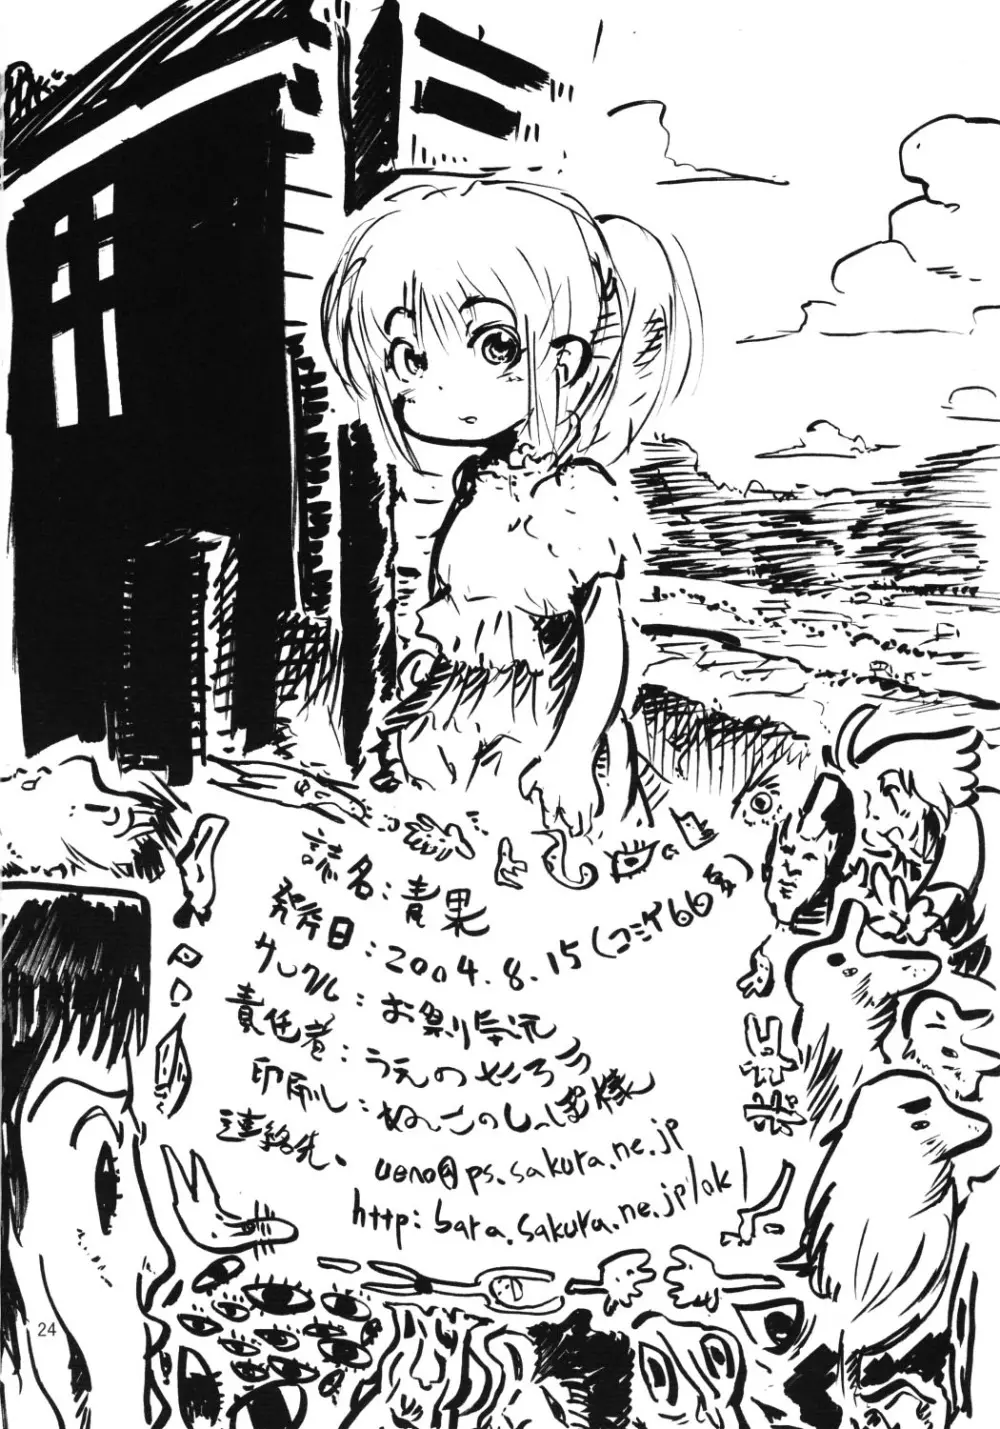 誌名:青果
発行日:2004.8.15(コミケ66夏)
サークル:お祭り気沅
責任者:うえのせころう
印刷:ぬこのしっぽ様
連絡先、
ueno@ps.sakura.ne.jp
http:bara.sakura.ne.jp/ok/
24